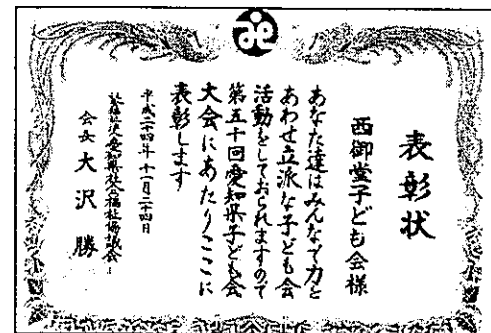 表彰状
西御堂子ども会様
あなた達はみんなで力を
あわせ立派な子ども会
活動をしておられますので
第五十回愛知県子ども会
大会にあたりここに
表彰します
平成二十四年十一月二十四日
社会福祉法人愛知県社会福祉協議会
会長 大沢 勝